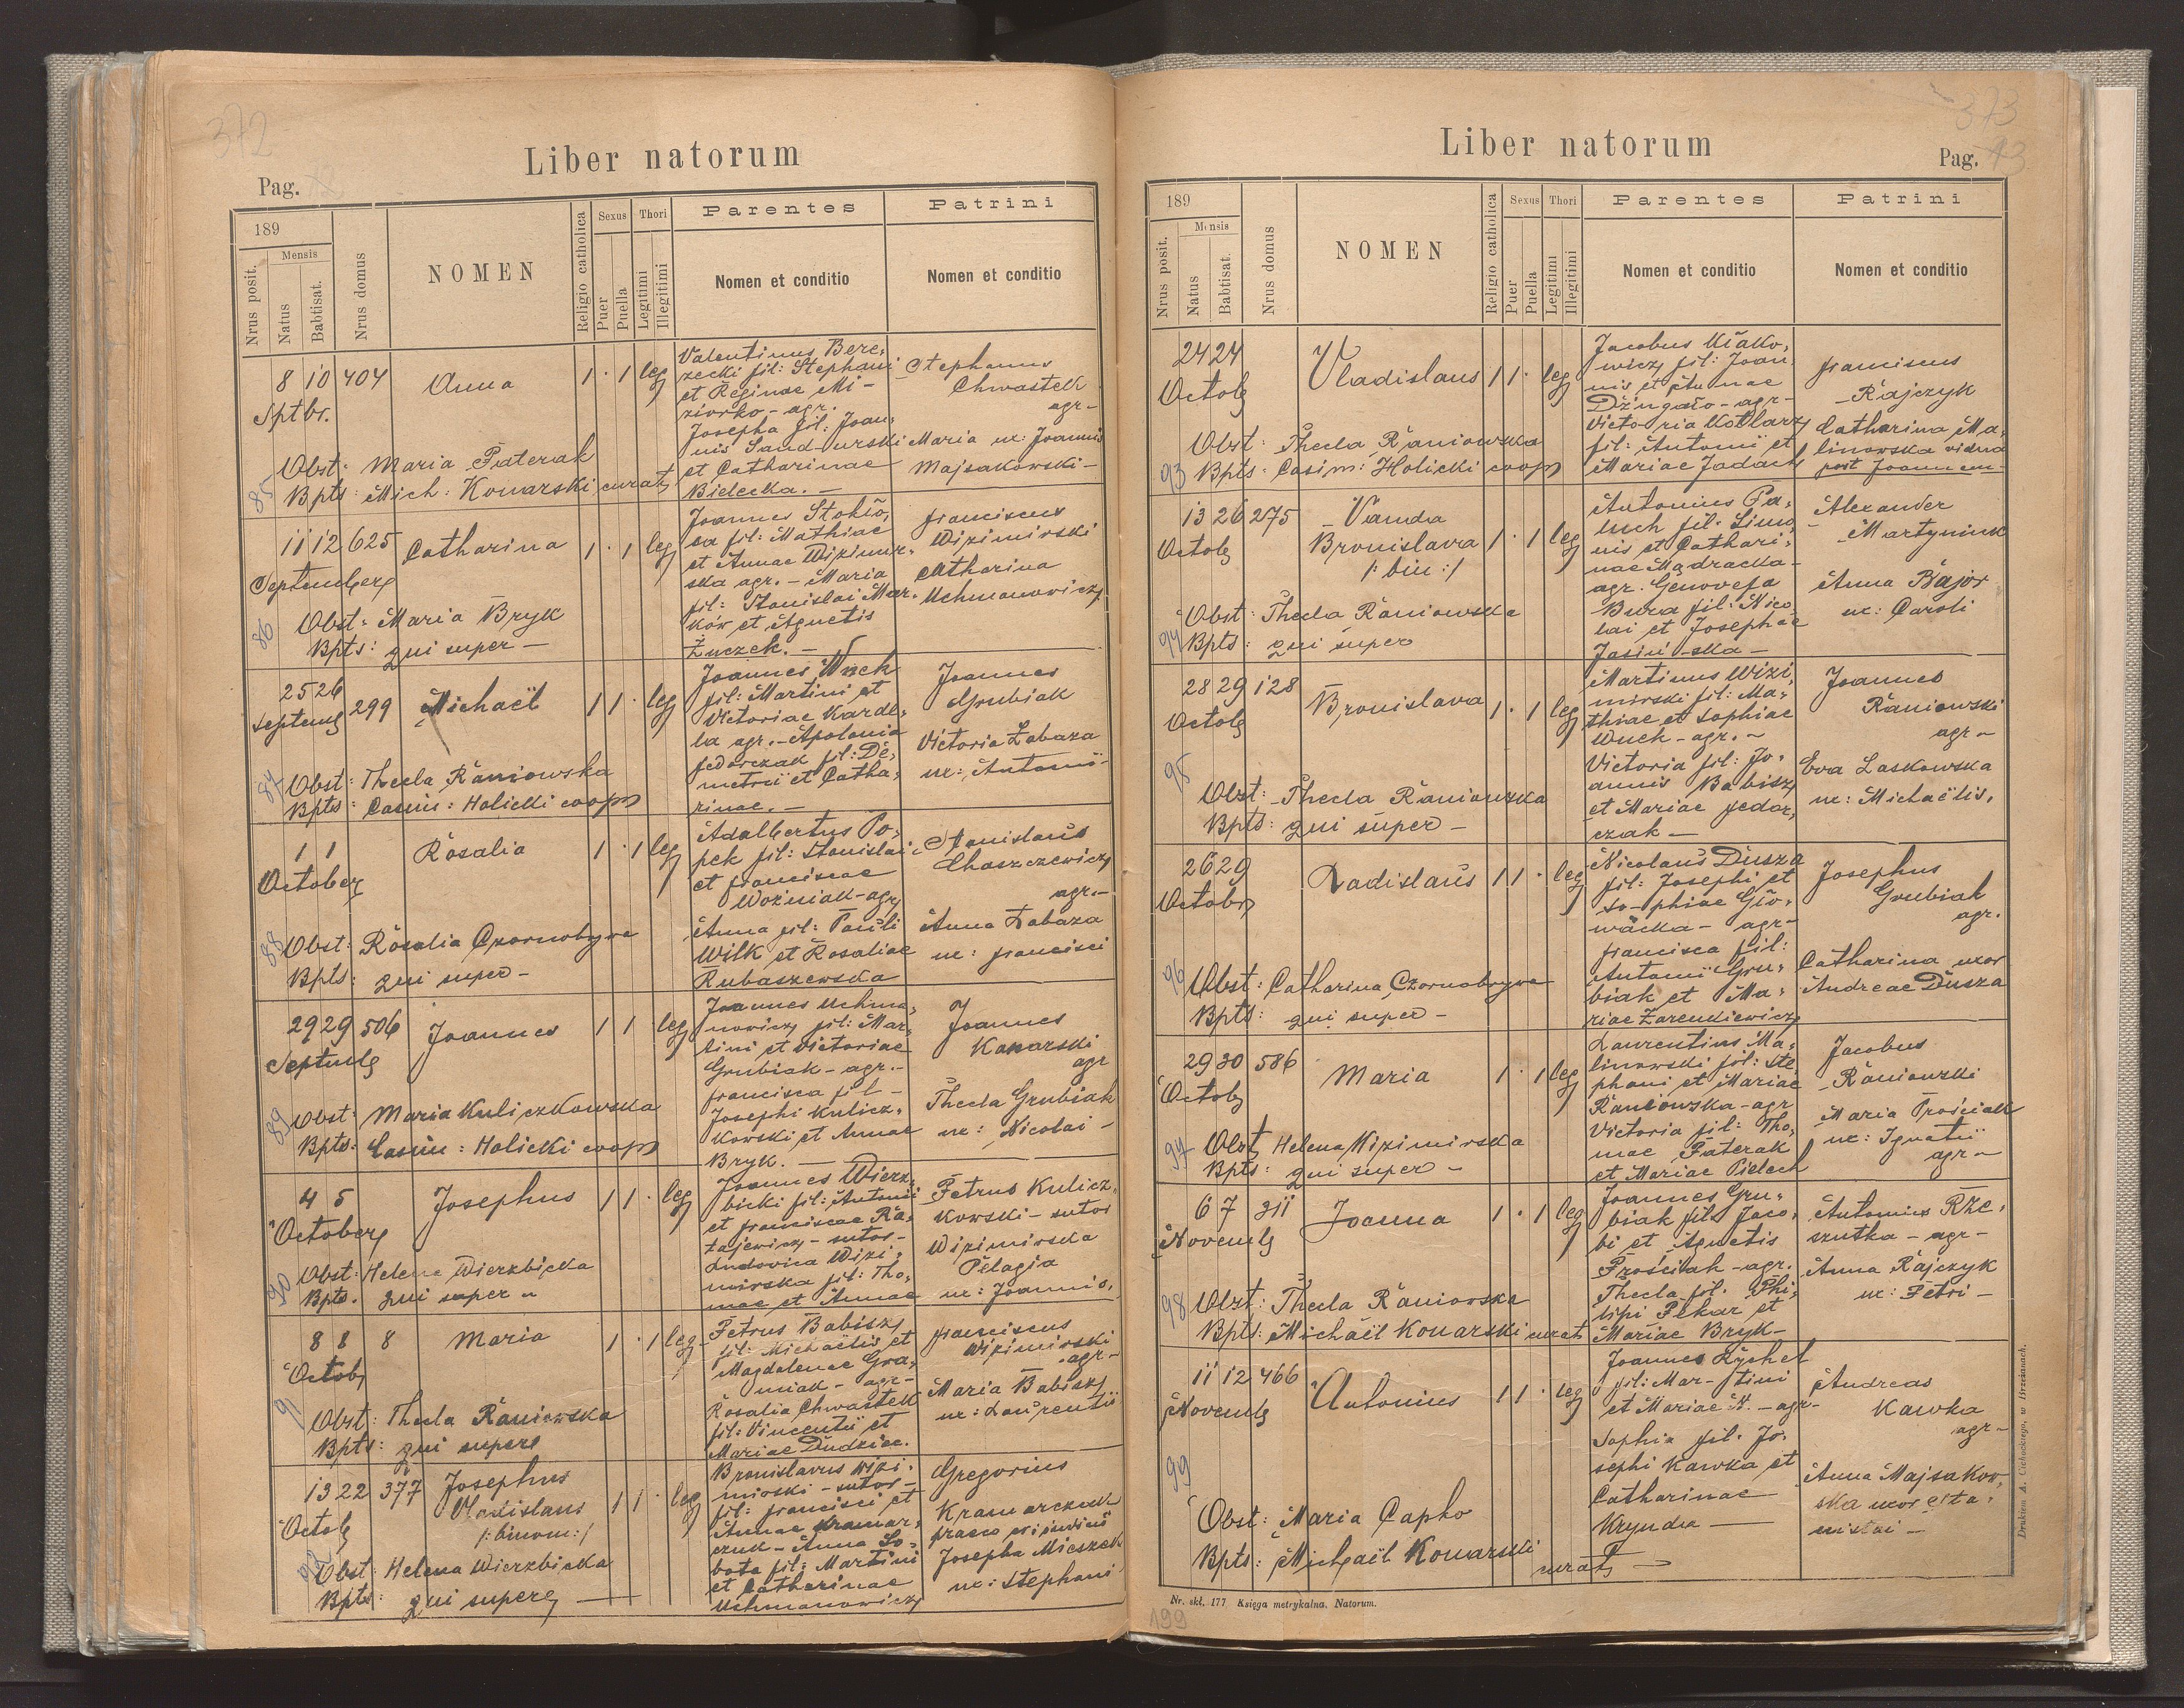 372
Liber natorum
Pag.
189
Nrus posit.
Mensis
Natus
Babtisat.
Nrus domus
NOMEN
Religio catholica
Sexus
Puer
Puella
Thori
Legitimi
Illegitimi
Parentes
Nomen et conditio
Patrini
Nomen et conditio
8 10 404 Anna 1 · 1 leg
Sptbr.
Obst: Maria Paterak
85 Bpts: Mich: Konarski curat
Valentinus Bere,
zecki fil: Stephani
et Reginae Mi-
ziorko - agr.
Josepha fil: Joan,
nis Sand-urski
et Catharinae
Bielecka. -
Stephanus
Chwastek
agr-
Maria ux: Joannis
Majsakowski -
11 12 625 Catharina 1 · 1 leg
September
Obst: Maria Bryk
86 Bpts: qui super -
Joannes Stokło,
sa fil: Mathiae
et Annae Wizimir-
ska agr. - Maria
fil: Stanislai Mar-
ków et Agnetis
Żuczek. -
Franciscus
Wizimirski
Catharina
Uchmanowicz
25 26 299 Michaël 1 1 · leg
Septemb
87 Obst: Thecla Raniowska
Bpts: Casim: Holicki coop
Joannes Wnek
fil: Martini et
Victoriae Karde,
la agr. - Apolonia
Fedorczak fil: De,
metrii et Catha,
rinae. -
Joannes
Grubiak
Victoria Łabaza
ux: Antoni
1 1 Rosalia 1 · 1 leg
October
88 Obst: Rosalia Czornobywe
Bpts: qui super -
Adalbertus Po,
pek fil: Stanislai
et Franciscae
Woźniak - agr
Anna fil: Pauli
Wilk et Rosaliae
Rubaszewska
Stanislaus
Chaszczewicz
agr. -
Anna Łabaza
ux: Francisci
29 29 506 Joannes 1 1 leg
Septemb
89 Obst: Maria Kuliczkowska
Bpts: Casim: Holicki coop
Joannes Uchma,
nowicz fil: Mar,
tini et Victoriae
Grubiak - agr. -
Francisca fil -
Josephi Kulicz,
kowski et Annae
Bryk. -
Joannes
Konarski
agr
Thecla Grubiak
ux: Nicolai -
4 5 Josephus 1 1 · leg
October
Obst: Helena Wierzbicka
90 Bpts. qui super -
Joannes Wierz,
bicki fil: Antonii
et Franciscae Ra,
tajewicz - sutor -
Ludovica Wizi,
mirska fil: Tho,
mae et Annae
Petrus Kulicz,
kowski - sutor
Wizimirska
Pelagia
ux: Joannis,
8 8 8 Maria 1 · 1 leg
Octob
91
Obst: Thecla Raniowska
Bpts: qui super
Petrus Babisz
fil: Michaëlis et
Magdalenae Gra,
niak - agr -
Rosalia Chwastek
fil: Vincentii et
Mariae Dudziec.
Franciscus
Wizimirski
agr -
Maria Babisz
ux: Laurentii
13 22 377 Josephus
Vladislaus 1 1 · leg
Octob /: binom :/
92 Obst: Helena Wierzbicka
Bpts: qui super
Bronislavus Wizi-
mirski - sutor -
fil: Francisci et
Annae Kramar,
czuk - Anna So-
bota fil: Martini
et Catharinae
Uchmanowicz
Gregorius
Kramarczuk
Josepha Mieszek
ux: Stephani
373
Liber natorum
Pag. 13
189
Nrus posit.
Mensis
Natus
Babtisat.
Nrus domus
NOMEN
Religio catholica
Sexus
Puer
Puella
Thori
Legitimi
Illegitimi
Parentes
Nomen et conditio
Patrini
Nomen et conditio
24 24 Vladislaus 1 1 · leg
Octob
Obst: Thecla Raniowska
93 Bpts: Casim: Holicki coop
Jacobus
wicz fil: Joan,
nis et Annae
- agr -
Victo-ria Kotlarz
fil: Antonii et
Mariae Jadach
Franciscus
Rajczyk
Catharina Ma,
linowska vidua
post Joannem -
13 26 275 Vanda
Octob Bronislava 1 · 1 leg
/: bin :/
Obst: Thecla Raniowska
94 Bpts: qui super
Antonius Pa,
luch fil: Simo,
nis et Cathari,
nae Mądracka -
agr. Genovefa
Buza fil: Nico,
lai et Josephae
Jasiń-ska -
Alexander
Martyniuk
Anna Bajor
ux: Caroli
28 29 128 Bronislava 1 · 1 leg
Octob
95
Obst: Thecla Raniowska
Bpts: qui super -
Martinus Wizi,
mirski fil: Ma,
thiae et Sophiae
Wnek - agr. -
Victoria fil: Jo,
annis Babisz
et Mariae Fedor,
czak -
Joannes
Raniowski
agr -
Eva Laskowska
ux: Michaëlis,
26 29 Ladislaus 1 1 · leg
Octobr
96 Obst: Catharina Czornobrywe
Bpts: qui super -
Nicolaus Dusza
fil: Josephi et
So-phiae Gło,
wacka - agr -
Francisca fil:
Antonii Gru,
biak et Ma,
riae Zarenkiewicz
Josephus
Grubiak
agr.
Catharina uxor
Andreae Dusza
29 30 586 Maria 1 · 1 leg
Octob
97 Obst Helena Wizimirska
Bpts: qui super -
Laurentius Ma,
linowski fil: Ste,
phani et Mariae
Raniowska - agr
Victoria fil: Tho,
mae Paterak
et Mariae Pielech
Jacobus
Raniowski
Maria Prościak
ux: Ignatii
agr -
6 7 311 Joanna 1 · 1 leg
Novemb
98 Obst: Thecla Raniowska
Bpts: Michaël Konarski curat
Joannes Gru,
biak fil: Jaco,
bi et Agnetis
Prościak - agr.
Thecla fil. Phi,
lipi Pekar et
Mariae Bryk -
Antonius Rze,
szutka - agr -
Anna Rajczyk
ux: Petri -
11 12 466 Antonius 1 1 · leg
Novemb
99
Obst: Maria Capko
Bpts: Michaël Konarski
curat
Joannes Rychel
fil: Mar-tini
et Mariae N. - agr -
Sophia fil. Jo,
sephi Kawka et
Catharinae
Krynda -
Andreas
Kawka
agr -
Anna Majsakow,
ska uxor Sta,
nislai -
Nr. skł. 177 Księga metrykalna. Natorum.
Drukiem A. Cichockiego, w Brzeżanach.
199